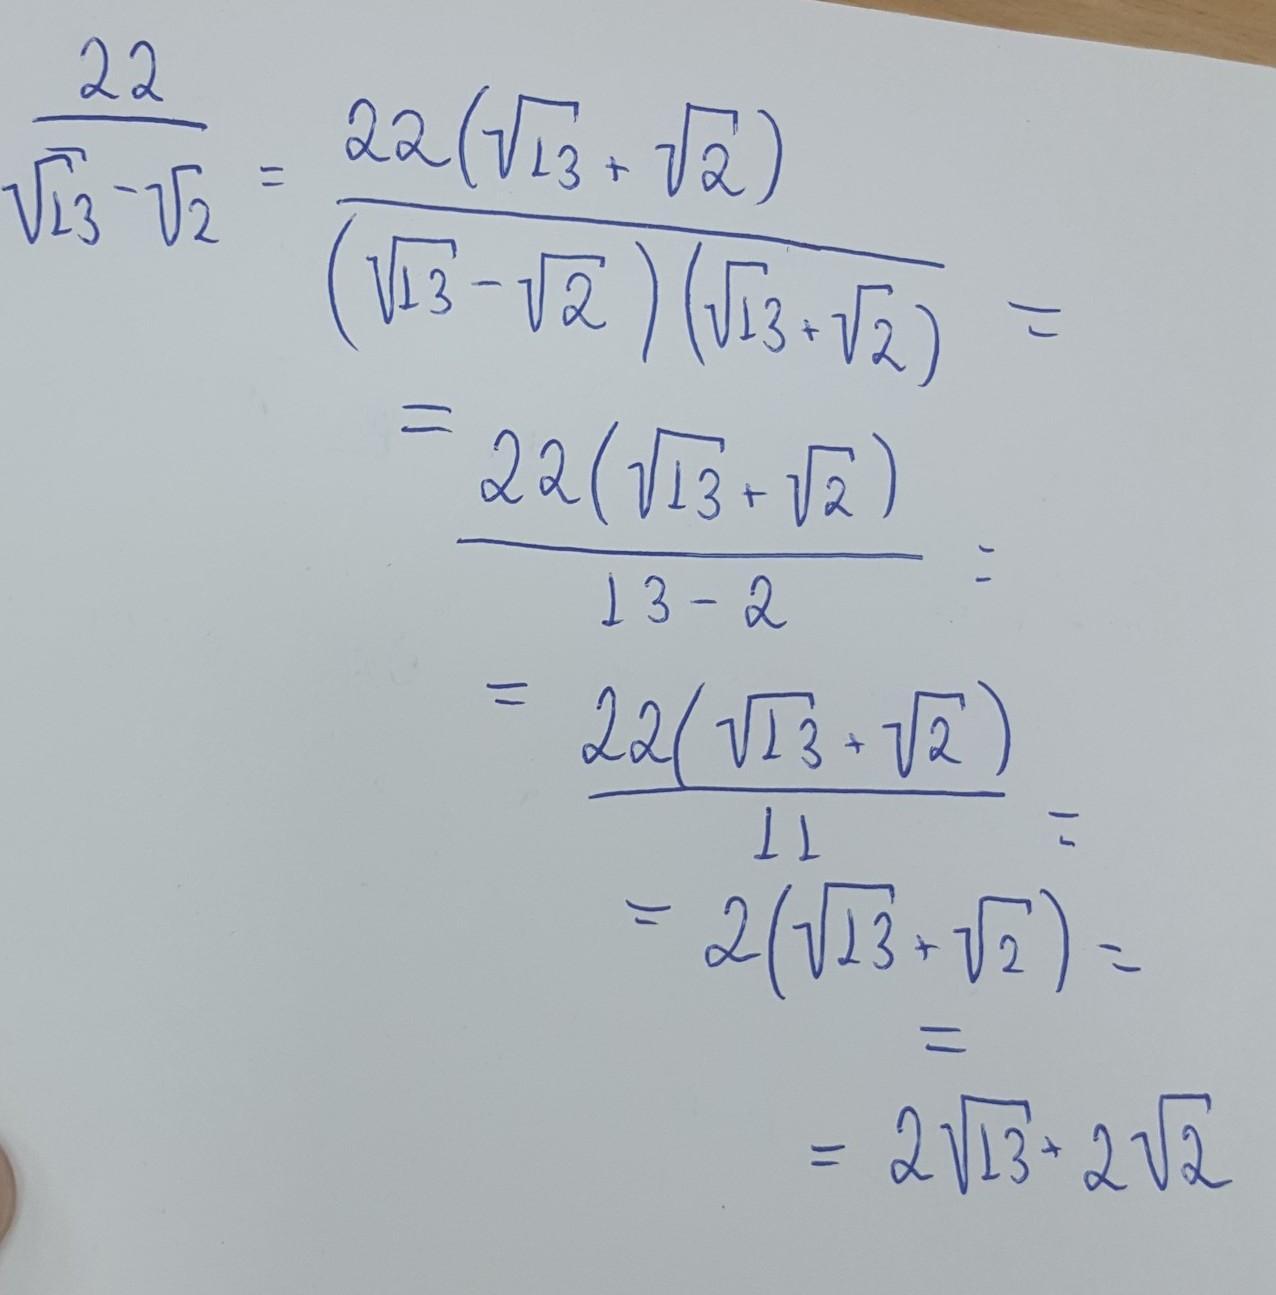 22/(√13 - √2) = 22(√13 + √2)/((√13 - √2)(√13 + √2)) =
= 22(√13 + √2)/(13 - 2) =
= 22(√13 + √2)/11 =
= 2(√13 + √2) =
=
= 2√13 + 2√2